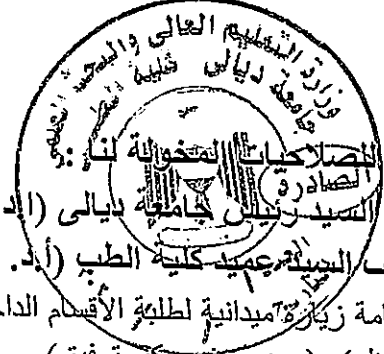 وزارة التعليم العالي والبحث العلمي
جامعة ديالى كلية الطب
للصلاحيات المخولة لنا :
الصادرة
السيد رئيس جامعة ديالى (ا.د
السيد عميد كلية الطب (أ.د.
امة زيارة ميدانية لطلبة الأقسام الداخ